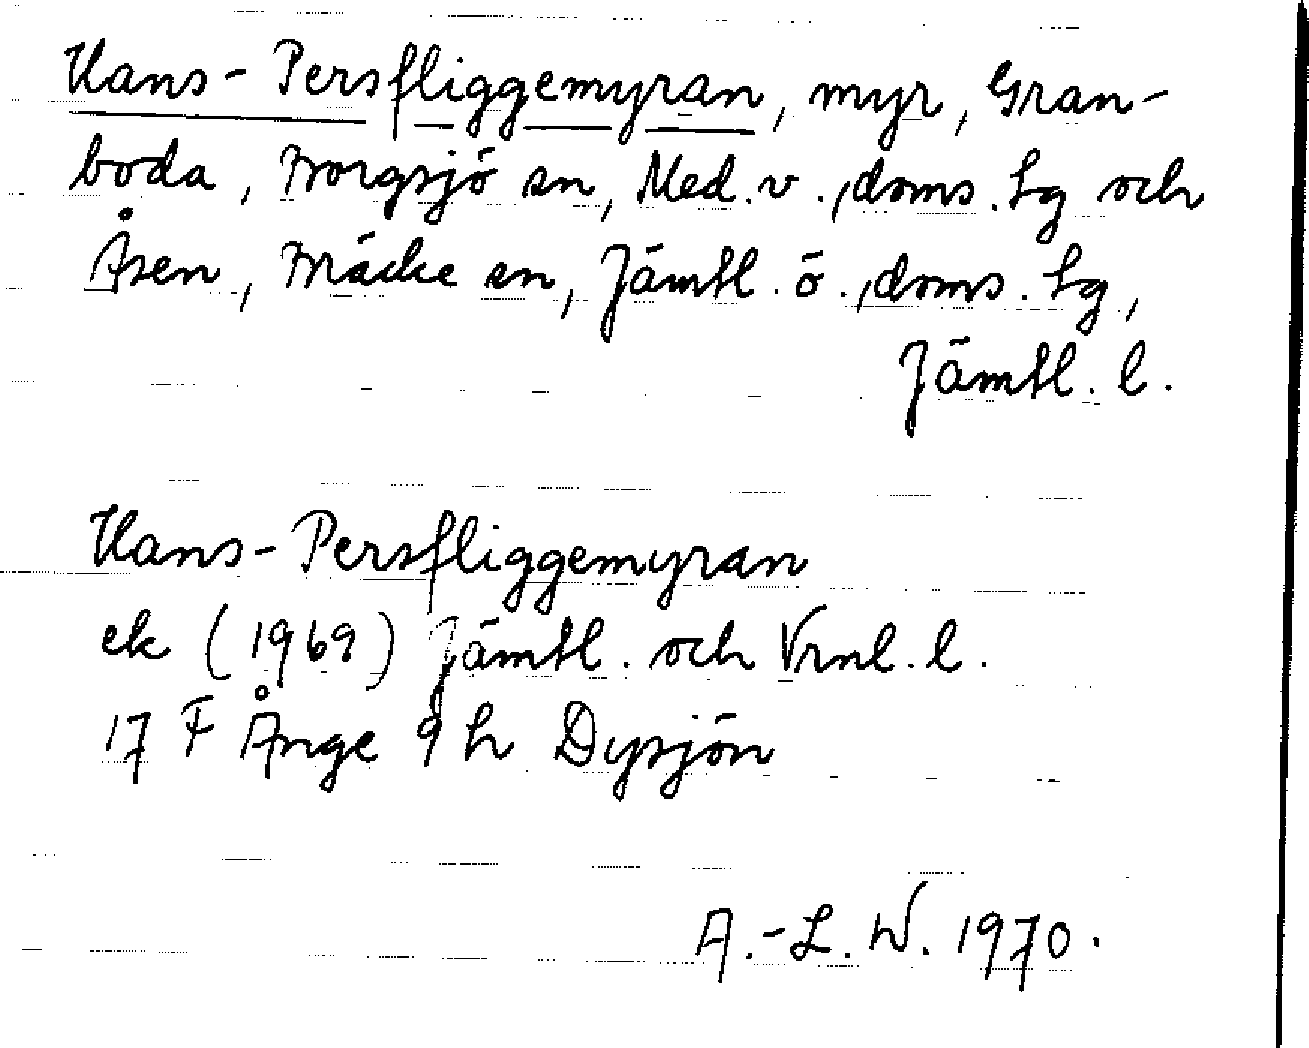 Hans-Persfliggemyran, myr, Gran-
boda, Borgsjö sn, Med. v., doms.lg och
Åsen, Bräcke sn, Jämtl. ö., doms.lg,
Jämtl. l.
Hans-Persfliggemyran
ek (1969) Jämtl. och Vrnl. l.
17 F Ånge 9 h Dysjön
A.-L. W. 1970.